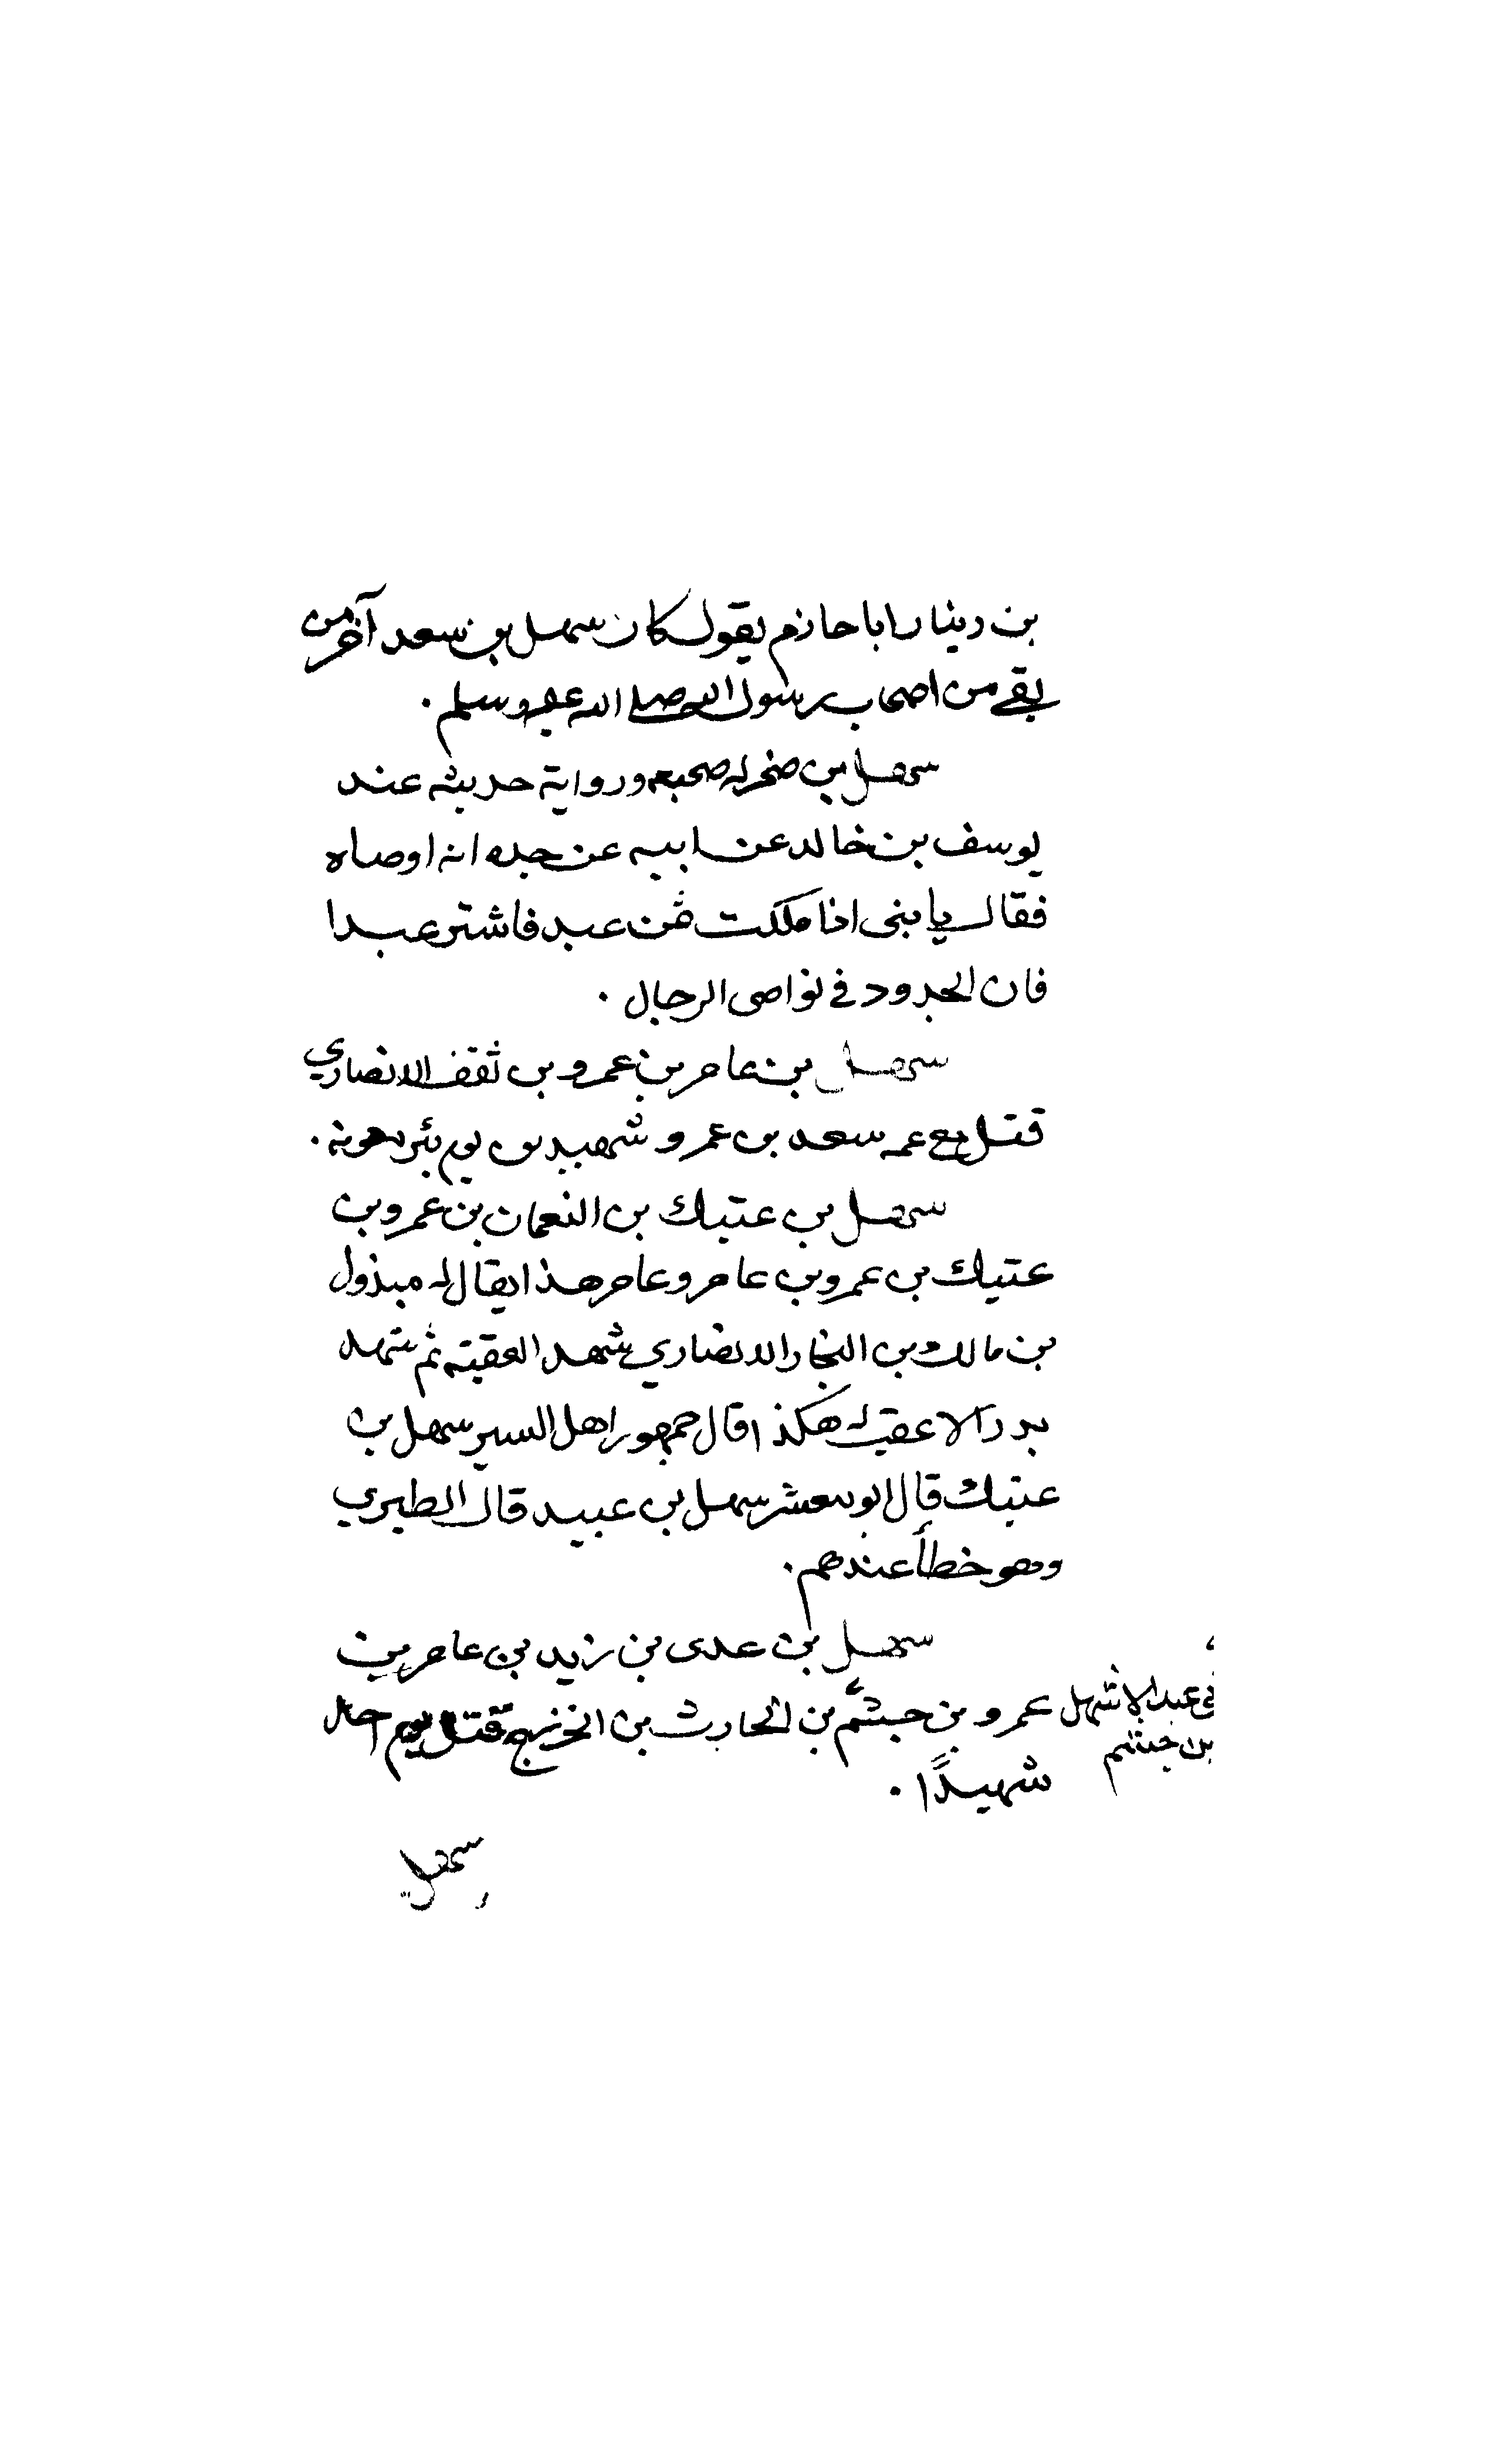 بن دينار ابا حازم يقول كان سهل بن سعد آخر من
بقي من اصحاب رسول الله صلى الله عليه وسلم.
سهل بن صخر له صحبه ورواية حديثه عند
يوسف بن خالد عن ابيه عن جده انه اوصاه
فقال يا بني اذا ملكت ثمن عبد فاشتر عبدا
فان الجدود في نواصي الرجال.
سهل بن عامر بن عمرو بن ثقف الانصاري
قتل مع عمه سعد بن عمرو شهيدين يوم بئر معونة.
سهل بن عتيك بن النعمان بن عمرو بن
عتيك بن عمرو بن عامر وعامر هذا يقال له مبذول
بن مالك بن النجار الانصاري شهد العقبة ثم شهد
بدرا لا عقب له هكذا قال جمهور اهل السير سهل بن
عتيك قال ابو معشر سهل بن عبيد قال الطبري
وهو خطأ عندهم.
سهل بن عدي بن زيد بن عامر بن
عمرو بن جشم بن الحارث بن الخزرج قتل يوم احد
شهيدًا.
عبد الاشهل
بن جشم
سهل